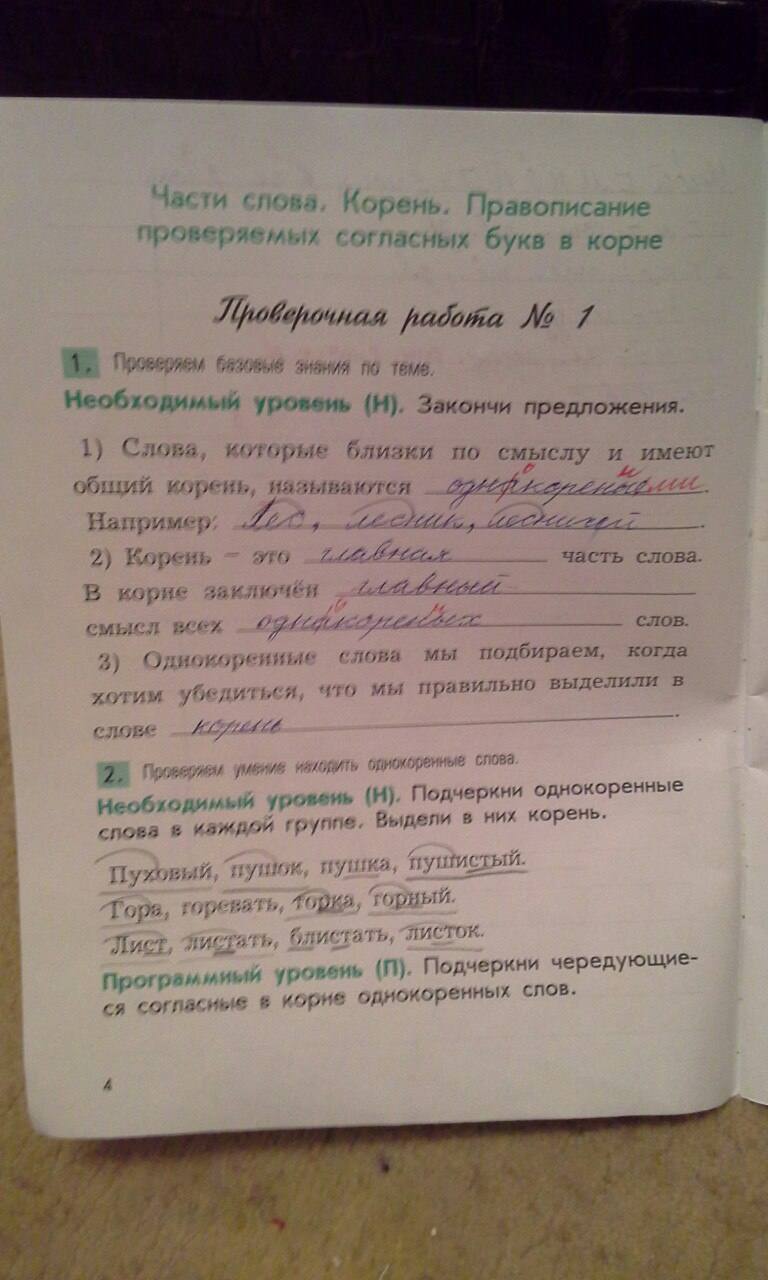 Части слова. Корень. Правописание
проверяемых согласных букв в корне
Проверочная работа № 1
1. Проверяем базовые знания по теме.
Необходимый уровень (Н). Закончи предложения.
1) Слова, которые близки по смыслу и имеют
общий корень, называются
Например: Лес, лесник, лесничий.
2) Корень – это главная часть слова.
В корне заключён главный
смысл всех слов.
3) Однокоренные слова мы подбираем, когда
хотим убедиться, что мы правильно выделили в
слове корень.
2. Проверяем умение находить однокоренные слова.
Необходимый уровень (Н). Подчеркни однокоренные
слова в каждой группе. Выдели в них корень.
Пуховый, пушок, пушка, пушистый.
Гора, горевать, горка, горный.
Лист, листать, блистать, листок.
Программный уровень (П). Подчеркни чередующие-
ся согласные в корне однокоренных слов.
4